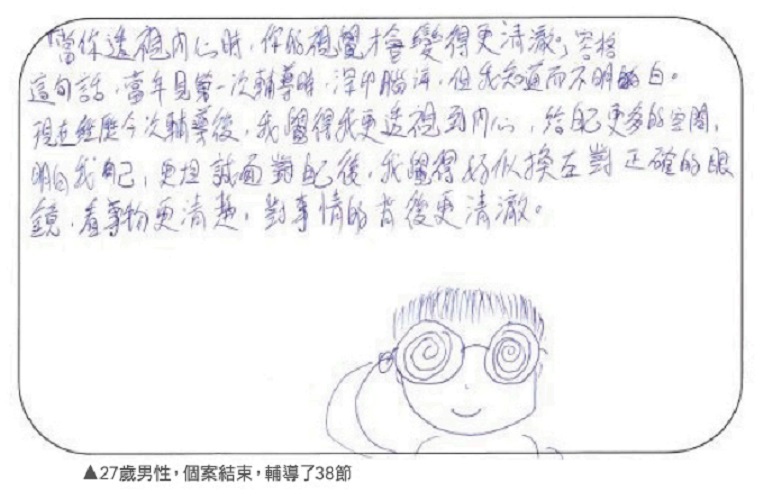 「當你透視內心時，你的視覺才會變得更清澈」容格
這句話，當年見第一次輔導時，深印腦海，但我知道而不明的白。
現在經歷今次輔導後，我覺得我更透視到內心，給自己更多的空間，
明白我自己，更坦誠面對自己後，我覺得好似換左對正確的眼
鏡，看事物更清楚，對事情的背後更清澈。
▲27歲男性，個案結束，輔導了38節